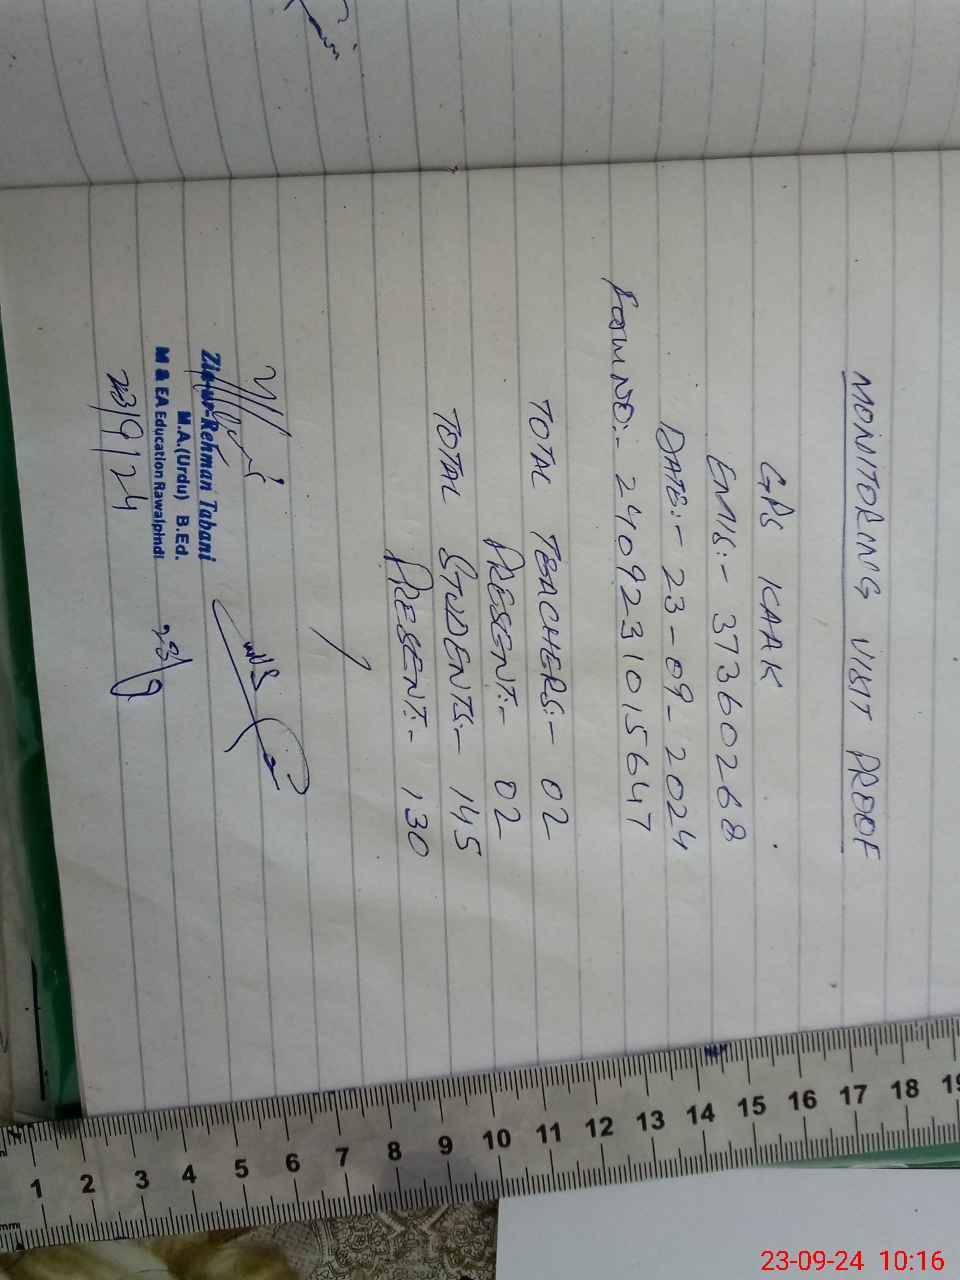 MONITORING VISIT PROOF
GPS KAAK
EMIS:- 37360268
DATE:- 23-09-2024
Form NO:- 2409231015647
TOTAL TEACHERS:- 02
PRESENT:- 02
TOTAL STUDENTS:- 145
PRESENT:- 130
Zia-ur-Rehman Tabani
M.A.(Urdu) B.Ed.
M & EA Education Rawalpindi
23/9/24
23/9
1 2 3 4 5 6 7 8 9 10 11 12 13 14 15 16 17 18 19
mm
23-09-24 10:16